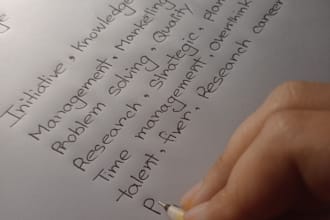 Initiative, Knowledge
Management, Marketing
Problem solving, Quality
Research, Strategic, Plan
Time management, Overthink
talent, fixer, Research career
P